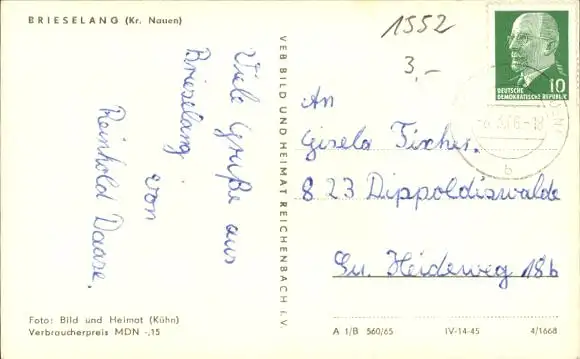 BRIESELANG (Kr. Nauen)
1552
3,-
10
DEUTSCHE
DEMOKRATISCHE REPUBLIK
b
Viele Grüße aus
Brieselang
von
Reinhold Daase.
VEB BILD UND HEIMAT REICHENBACH i. V.
An
Gisela Fischer.
8 23 Dippoldiswalde
Heideweg 18b
Foto: Bild und Heimat (Kühn)
Verbraucherpreis MDN -,15
A 1/B 560/65 IV-14-45 4/1668